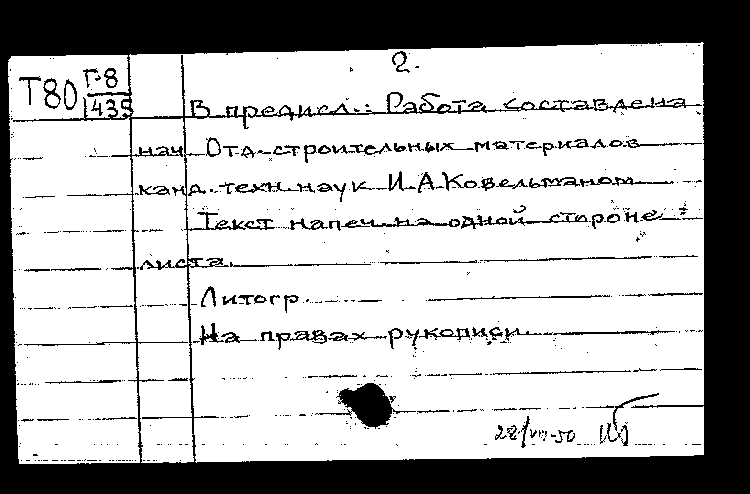 2.
Т80 Г-8
1435
В предисл.: Работа составлена
нач. Отд. строительных материалов
канд. техн. наук И.А.Ковельманом
Текст напеч. на одной стороне
листа.
Литогр.
На правах рукописи.
28/VII-50